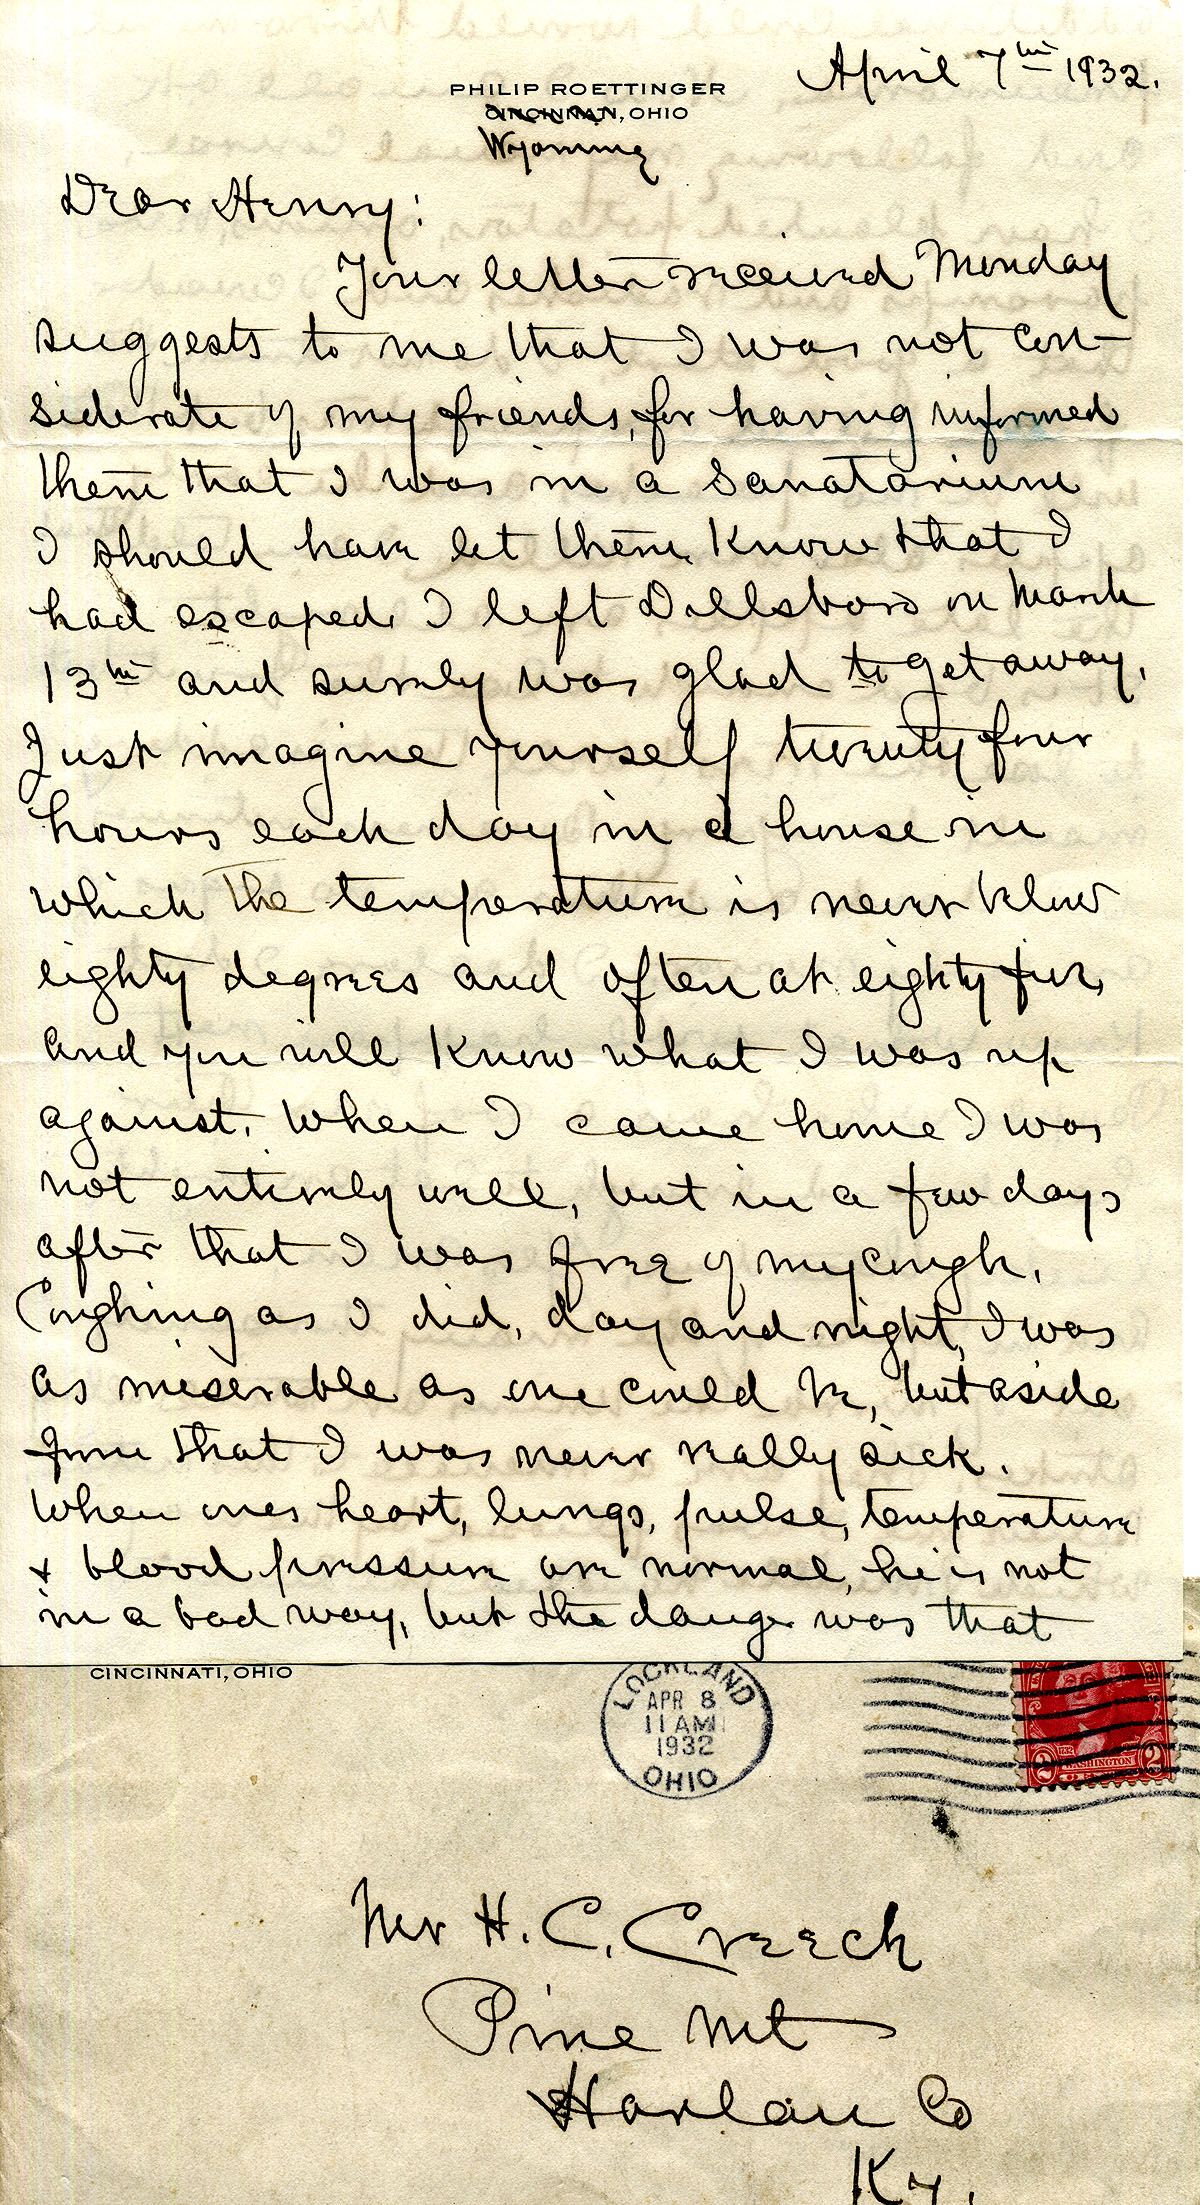 April 7th 1932.
PHILIP ROETTINGER
CINCINNATI, OHIO
Wyoming
Dear Henry:
Your letter received Monday
suggests to me that I was not con-
siderate of my friends, for having informed
them that I was in a Sanatarium
I should have let them know that I
had escaped. I left Dillsboro on March
13th and surely was glad to get away.
Just imagine yourself twenty four
hours each day in a house in
which the temperature is never below
eighty degrees and often at eighty five,
and you will know what I was up
against. When I came home I was
not entirely well, but in a few days
after that I was free of my cough.
Coughing as I did, day and night, I was
as miserable as one could be, but aside
from that I was never really sick.
When ones heart, lungs, pulse, temperature
& blood pressure are normal, he is not
in a bad way, but the danger was that
CINCINNATI, OHIO
LOCKLAND
APR 8
11 AM
1932
OHIO
2 WASHINGTON 2
Mr H. C. Creech
Pine Mt
Harlan Co
Ky.